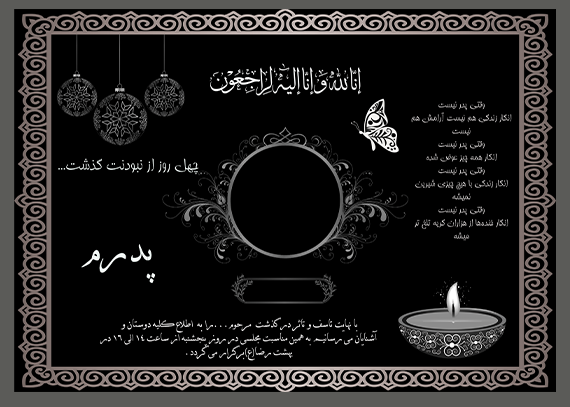 انا لله وانا الیه راجعون
وقتی پدر نیست
انگار زندگی هم نیست آرامش هم
نیست
وقتی پدر نیست
انگار همه چیز عوض شده
وقتی پدر نیست
انگار زندگی با هیچ چیزی شیرین
نمیشه
وقتی پدر نیست
انگار خنده‌ها از هزاران گریه تلخ تر
میشه
چهل روز از نبودنت گذشت...
پدرم
با نهایت تاسف و تاثر درگذشت مرحوم ...را به اطلاع کلیه دوستان و
آشنایان می رسانیم به همین مناسبت مجلسی در روز پنجشنبه از ساعت ۱۴ الی ۱۶ در
بهشت رضا(ع)برگزار می گردد .